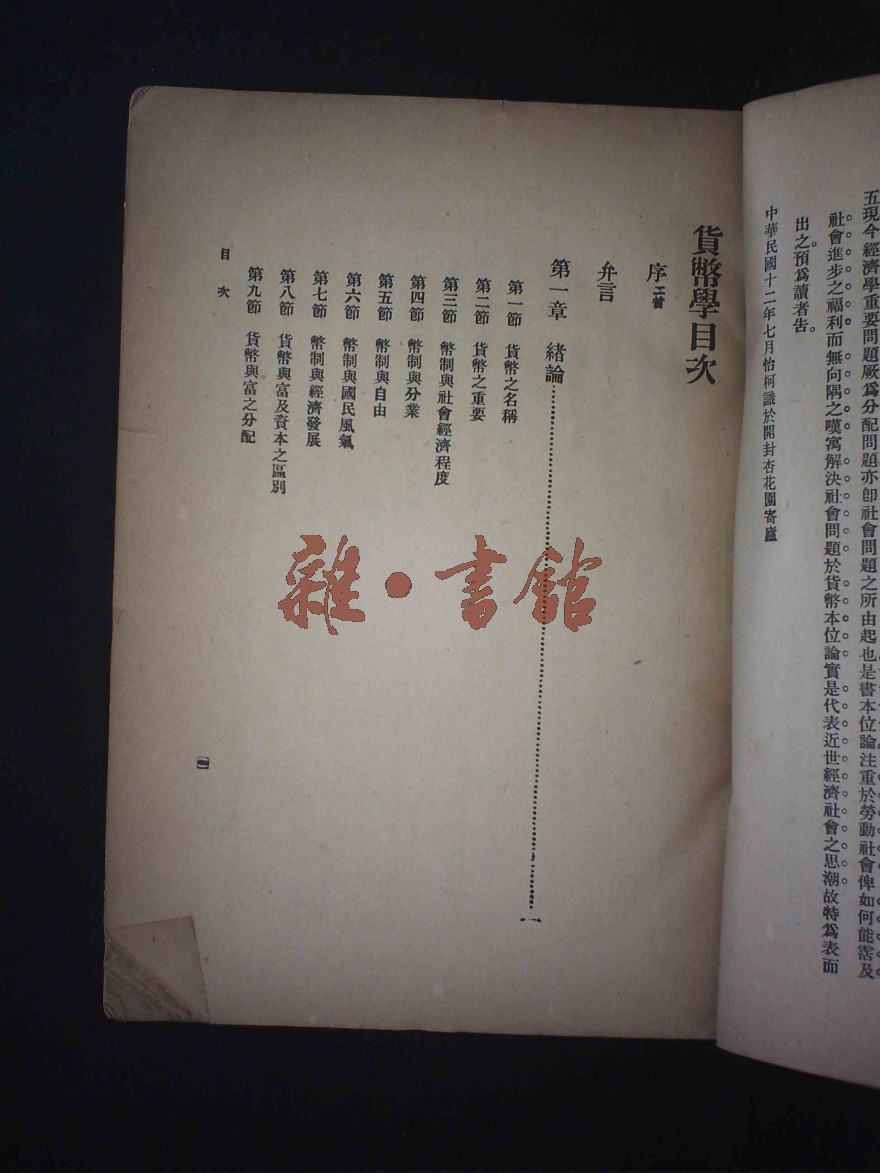 五現今經濟學重要問題厥爲分配問題亦卽社會問題之所由起也是書本位論注重於勞動社會俾如何能霑及
社會進步之福利而無向隅之嘆寓解決社會問題於貨幣本位論實是代表近世經濟社會之思潮故特爲表而
出之預爲讀者吿
中華民國十二年七月怡柯識於開封杏花園寄廬
貨幣學目次
序 二首
弁言
第一章 緖論……………一
第一節 貨幣之名稱
第二節 貨幣之重要
第三節 幣制與社會經濟程度
第四節 幣制與分業
第五節 幣制與自由
第六節 幣制與國民風氣
第七節 幣制與經濟發展
第八節 貨幣與富及資本之區別
第九節 貨幣與富之分配
目次
一
雜·書館